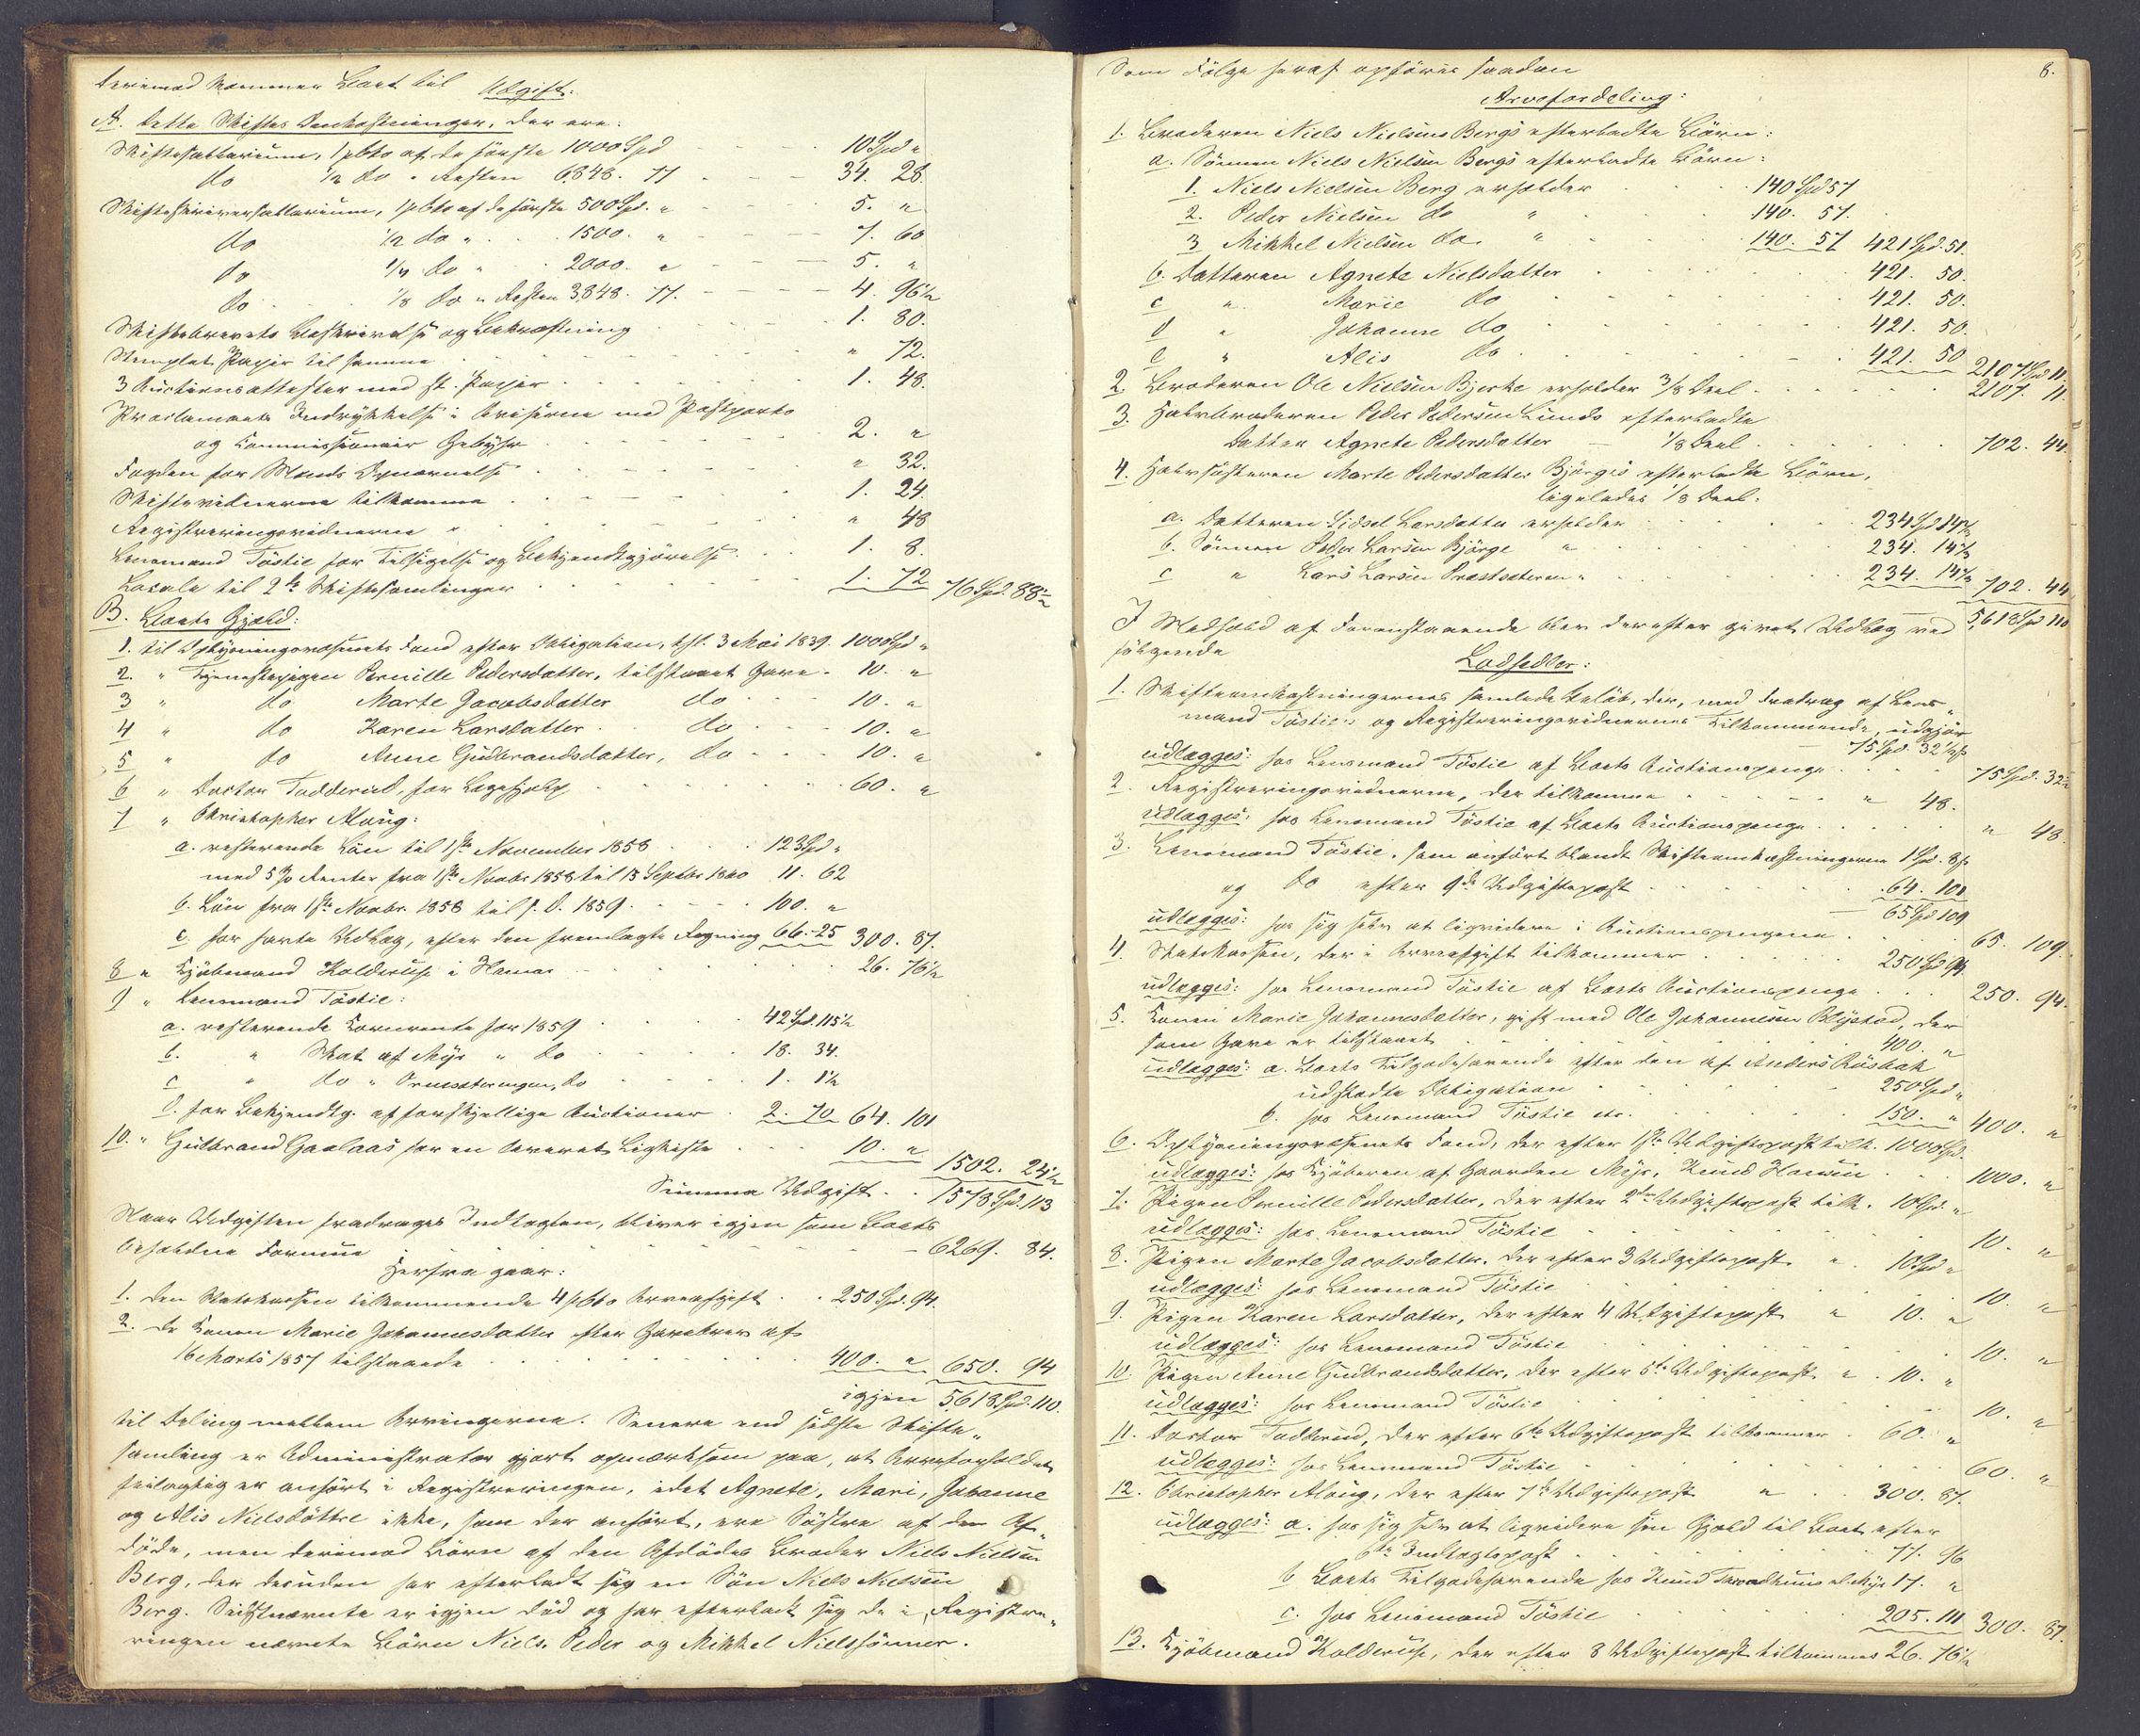 Derimod kommer Boet til Udgift:
A. Dette Skiftes Omkostninger, der ere:
Skiftesallarium, 1 pCto af de første 1000 Spd 10 Spd "
do 1/2 do " Resten 6848. 77 34. 28.
Skifteskriversallarium, 1 pCto af de første 500 Spd. " 5. "
do 1/2 do " 1500. " 7. 60
do 1/4 do " 2000. " 5. "
do 1/8 do " Resten 3848. 77. 4. 96 1/2
Skiftebrevets Beskrivelse og Bekræftning 1. 80.
Stemplet Papir til samme " 72.
3 Auctionsattester med st. Papir 1. 48.
Proclamaets Indrykkelse i Aviserne med Postporto
og Commissionair Gebyhr 2. "
Fogden for Skiftes " 32.
Skiftevidnerne tilkomme 1. 24.
Registreringsvidnerne " " 48
Lensmand Tøstie for Tilsigelse og Bekjendtgjørelse 1. 8.
Locale til 2de Skiftesamlinger 1. 72 76 Spd. 88 1/2
B. Boets Gjæld:
1. til Oplysningsvæsenets Fond efter Obligation, tgl. 3 Mai 1839. 1000 Spd "
2. " Tjenestepigen Pernille Pedersdatter, tilstaaet Gave. 10. "
3 " do Marte Jacobsdatter do 10. "
4 " do Karen Larsdatter do 10. "
5 " do Anne Gudbrandsdatter, do 10. "
6 " Doctor Tadderud, for Lægehjelp 60. "
7 " Christopher Alaug:
a. resterende Løn til 1ste November 1858 123 Spd "
med 5 % Renter fra 1ste Novbr 1858 til 15 Septbr 1860 11. 62
b. Løn fra 1ste Novbr. 1858 til s. D. 1859 100. "
c. for havte Udlæg, efter den fremlagte Regning 66. 25 300. 87.
8 " Kjøbmand Kolderup i Hamar 26. 76 1/2
9 " Lensmand Tøstie:
a. resterende Kornrente for 1859 42 Spd. 115 1/2
b. " Skat af Myr " do 18. 34.
c " do " Ornesæteringen, do 1. 1 1/2
d. for Bekjendtg. af forskjellige Auctioner 2. 70 64. 101
10. " Gulbrand Gaalaas for en leveret Ligkiste 10. " 1502. 24 1/2
Summa Udgift 1578 Spd. 113
Naar Udgiften fradrages Indtægten, bliver igjen som Boets
beholdne Formue 6269. 84.
Herfra gaar:
1. den Statskassen tilkommende 4 pCto Arveafgift 250 Spd. 94.
2. de Konen Marie Johannesdatter efter Gavebrev af
16 Marts 1857 tilstaaede 400. " 650. 94
igjen 5,618 Spd. 110.
til Deling mellem Arvingerne. Senere end sidste Skifte-
samling er Administrator gjort opmærksom paa, at Arveforholdet
feilagtig er anført i Registreringen, idet Agnete, Mari, Johanne
og Alis Nielsdøttre ikke, som der anført, ere Søstre af den Af-
døde, men derimod Børn af den Afdødes Broder Niels Nielsen
Berg, der desuden har efterladt sig en Søn Niels Nielsen
Berg. Sidstnævnte er igjen død og har efterladt sig de i Registre-
ringen nævnte Børn Niels, Peder og Mikkel Nielssønner.
8.
Som Følge heraf opføres saadan
Arvefordeling:
1. Broderen Niels Nielsens Bergs efterladte Børn:
a. Sønnen Niels Nielsen Bergs efterladte Børn:
1. Niels Nielsen Berg erholder 140 Spd 57
2. Peder Nielsen do " 140. 57.
3 Mikkel Nielsen do. " 140. 57 421 Spd. 51.
b. Datteren Agnete Nielsdatter 421. 50.
c " Marie do 421. 50.
d " Johanne do 421. 50.
e " Alis do 421. 50 2107 Spd 11.
2. Broderen Ole Nielsen Bjerke erholder 3/8 Deel 2107. 11.
3. Halvbroderen Peder Pedersen Lunds efterladte
Datter Agnete Pedersdatter — 1/8 Deel 702. 44.
4. Halvsøsteren Marte Pedersdatter Bjørges efterladte Børn,
ligeledes 1/8 Deel.
a. Datteren Sidsel Larsdatter erholder 234 Spd 14 2/3
b. Sønnen Peder Larsen Bjørge " 234. 14 2/3
c " Lars Larsen Præstsæteren " 234. 14 2/3 702. 44
5,618 Spd 110
I Medhold af Foranstaaende blev derefter givet Udlæg ved
følgende
Lodsedler:
1. Skifteomkostningernes samlede Beløb, der, med Fradrag af Lens-
mand Tøstie's og Registreringsvidnernes Tilkommende, udgjør
75 Spd. 32 1/2 s
udlægges: hos Lensmand Tøstie af Boets Auctionspenge 75 Spd. 32 1/2
2. Registreringsvidnerne, der tilkomme " 48.
udlægges: hos Lensmand Tøstie af Boets Auctionspenge " 48.
3. Lensmand Tøstie, som anført blandt Skifteomkostningerne 1 Spd. 8 s
og do efter 9de Udgiftspost 64. 101
65 Spd 109
udlægges: hos sig selv at liqvidere i Auctionspengene 65. 109.
4. Statskassen, der i Arveafgift tilkommer 250 Spd 94.
udlægges: hos Lensmand Tøstie af Boets Auctionspenge 250. 94.
5. Konen Marie Johannesdatter, gift med Ole Johannesen Blystad, der
som Gave er tilstaaet 400. "
udlægges: a. Boets Tilgodehavende efter den af Anders Røsbak
udstedte Obligation 250 Spd "
b. hos Lensmand Tøstie etc. 150. " 400. "
6. Oplysningsvæsenets Fond, der efter 1ste Udgiftspost tilk. 1000 Spd.
udlægges: hos Kjøberen af Gaarden Myr, Knud Hansen 1000. "
7. Pigen Pernille Pedersdatter, der efter 2den Udgiftspost tilk. 10 Spd. "
udlægges: hos Lensmand Tøstie 10. "
8. Pigen Marte Jacobsdatter, der efter 3 Udgiftspost " 10 Spd "
udlægges: hos Lensmand Tøstie 10. "
9. Pigen Karen Larsdatter, der efter 4 Udgiftspost " 10. "
udlægges: hos Lensmand Tøstie 10. "
10. Pigen Anne Gudbrandsdatter, der efter 5te Udgiftspost " 10. "
udlægges: hos Lensmand Tøstie 10. "
11. Doctor Tadderud, der efter 6te Udgiftspost tilkommer 60. "
udlægges: hos Lensmand Tøstie 60. "
12. Christopher Alaug, der efter 7de Udgiftspost " 300. 87.
udlægges: a. hos sig selv at liqvidere sin Gjæld til Boet efter
6te Indtægtspost 77. 96
b Boets Tilgodehavende hos Knud 17. "
c. hos Lensmand Tøstie 205. 111 300. 87.
13. Kjøbmand Kolderup, der efter 8 Udgiftspost tilkommer 26. 76 1/2